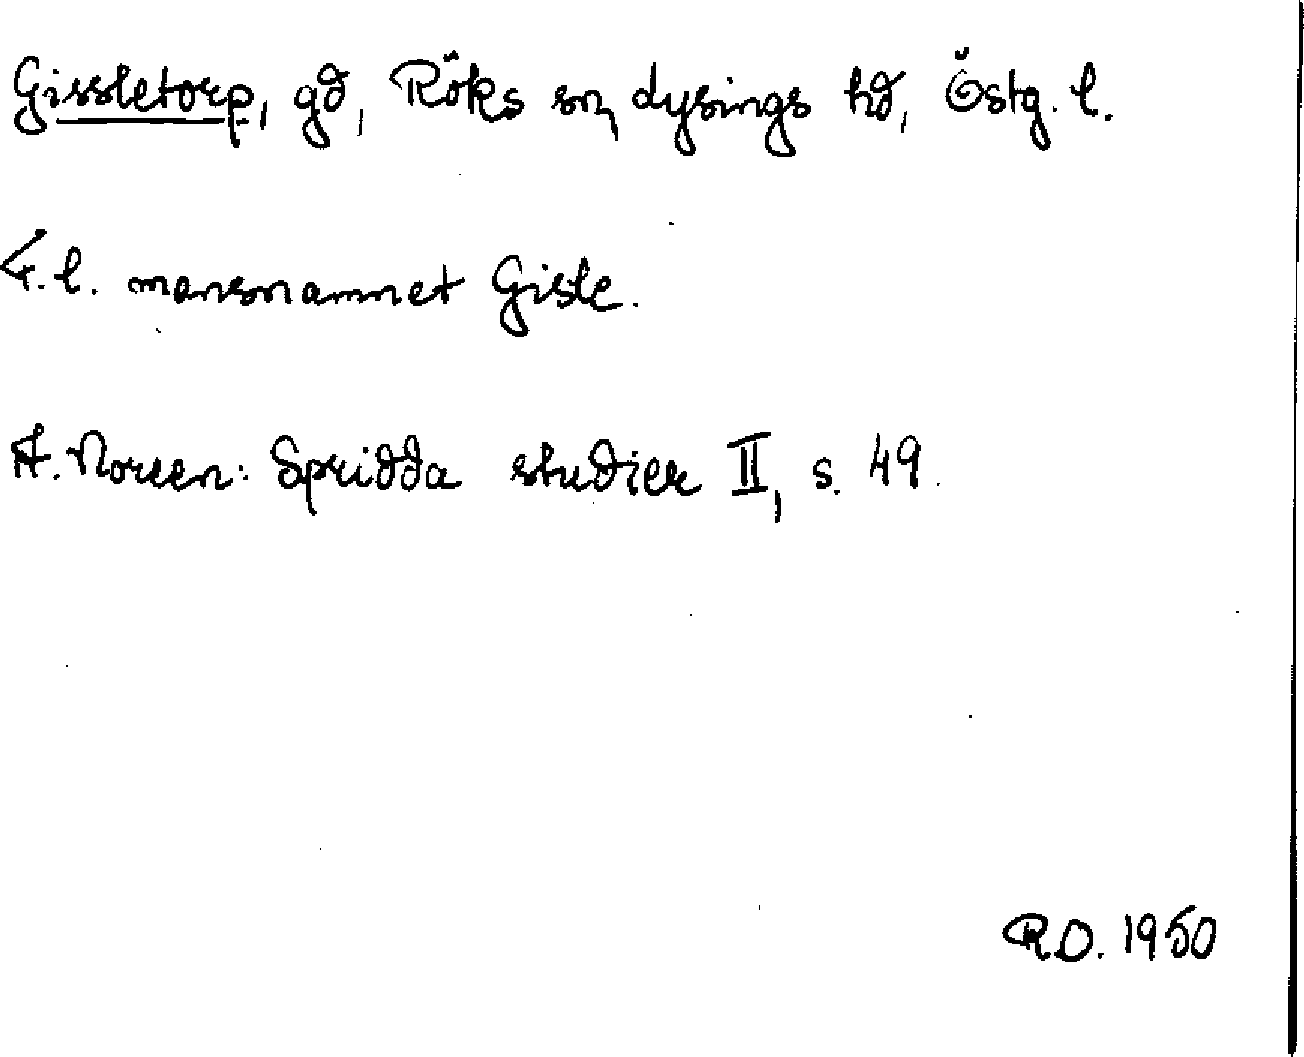 Gissletorp, gd, Röks sn, Lysings hd, Östg. l.
F.l. mansnamnet Gisle.
A. Noreen: Spridda studier II, s. 49.
R.O. 1950